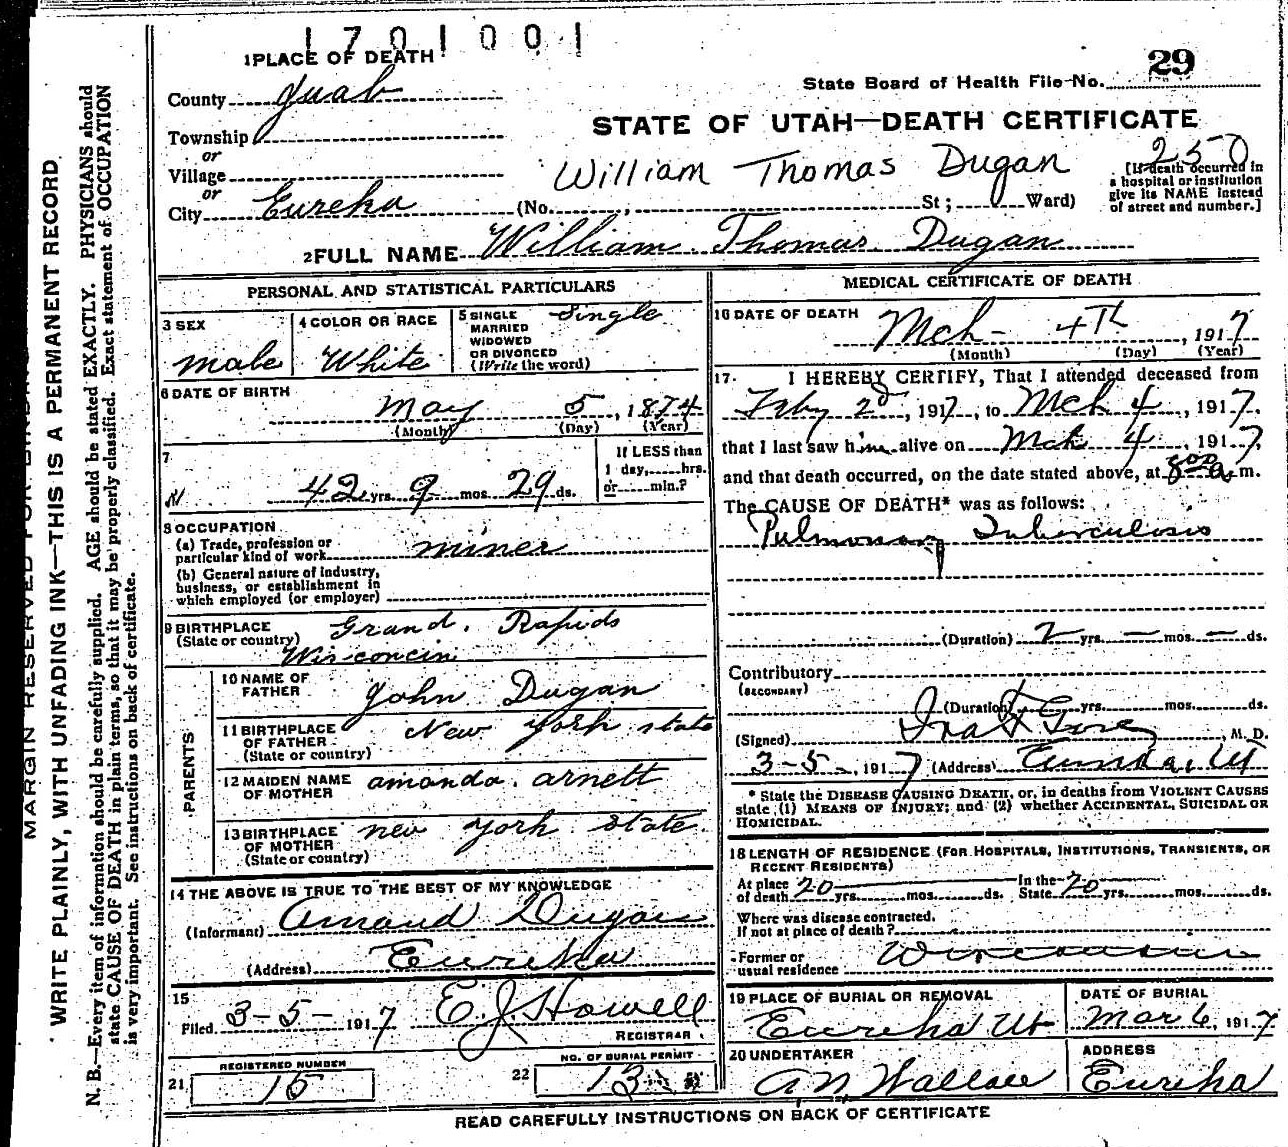 1701001
1 PLACE OF DEATH
29
State Board of Health File No.
County Juab
STATE OF UTAH—DEATH CERTIFICATE
Township
or
Village
William Thomas Dugan
250
[If death occurred in
a hospital or institution
give its NAME instead
of street and number.]
or
City Eureka (No. , St; Ward)
2 FULL NAME William Thomas Dugan
PERSONAL AND STATISTICAL PARTICULARS
3 SEX
male
4 COLOR OR RACE
White
5 SINGLE
MARRIED
WIDOWED
OR DIVORCED
(Write the word)
Single
6 DATE OF BIRTH
May 5, 1874
(Month) (Day) (Year)
7
42 yrs. 9 mos. 29 ds.
If LESS than
1 day, hrs.
or min.?
8 OCCUPATION
(a) Trade, profession or
particular kind of work miner
(b) General nature of industry,
business, or establishment in
which employed (or employer)
9 BIRTHPLACE
(State or country) Grand. Rapids
Wisconcin
PARENTS
10 NAME OF
FATHER John Dugan
11 BIRTHPLACE
OF FATHER
(State or country) New York state
12 MAIDEN NAME
OF MOTHER amanda. arnett
13 BIRTHPLACE
OF MOTHER
(State or country) new york state
14 THE ABOVE IS TRUE TO THE BEST OF MY KNOWLEDGE
(Informant) Amand Dugan
(Address) Eureka
15
Filed 3-5- 1917 E. J. Howell
REGISTRAR
REGISTERED NUMBER
21 15
NO. OF BURIAL PERMIT
22 13
MEDICAL CERTIFICATE OF DEATH
16 DATE OF DEATH
Mch- 4th, 1917
(Month) (Day) (Year)
17. I HEREBY CERTIFY, That I attended deceased from
Feby 2d, 1917, to Mch 4, 1917.
that I last saw him alive on Mch 4, 1917,
and that death occurred, on the date stated above, at 800 a m.
The CAUSE OF DEATH* was as follows:
Pulmonary Tuberculosis
(Duration) 2 yrs. — mos. — ds.
Contributory
(SECONDARY)
(Duration) yrs. mos. ds.
(Signed) , M. D.
3-5-, 1917 (Address) Eureka, Ut
* State the DISEASE CAUSING DEATH, or, in deaths from VIOLENT CAUSES
state (1) MEANS OF INJURY; and (2) whether ACCIDENTAL, SUICIDAL OR
HOMICIDAL.
18 LENGTH OF RESIDENCE (FOR HOSPITALS, INSTITUTIONS, TRANSIENTS, OR
RECENT RESIDENTS)
At place
of death 20 yrs. mos. ds.
In the
State 20 yrs. mos. ds.
Where was disease contracted.
If not at place of death?
Former or
usual residence
19 PLACE OF BURIAL OR REMOVAL
Eureka Ut
DATE OF BURIAL
Mar 6, 1917
20 UNDERTAKER
A. N. Wallace
ADDRESS
Eureka
READ CAREFULLY INSTRUCTIONS ON BACK OF CERTIFICATE
MARGIN RESERVED FOR
WRITE PLAINLY, WITH UNFADING INK—THIS IS A PERMANENT RECORD
N. B.—Every item of information should be carefully supplied. AGE should be stated EXACTLY. PHYSICIANS should
state CAUSE OF DEATH in plain terms, so that it may be properly classified. Exact statement of OCCUPATION
is very important. See instructions on back of certificate.